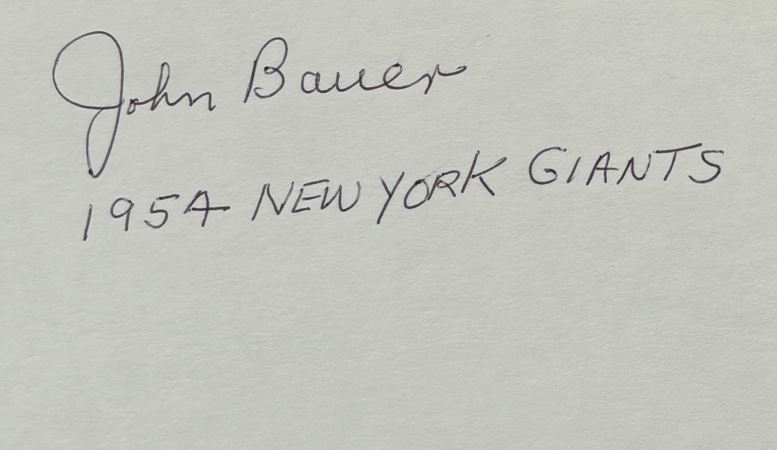 John Bauer
1954 NEW YORK GIANTS